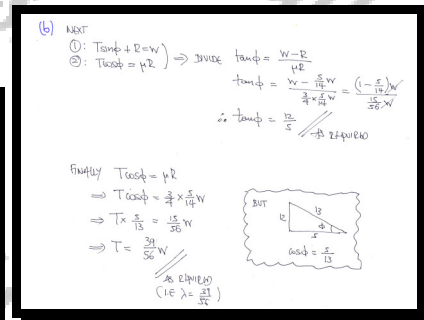 (b) NEXT
①: Tsinϕ + R = W
②: Tcosϕ = μR
⇒ DIVIDE tanϕ = (W - R)/(μR)
tanϕ = (W - 5/14 W)/(3/4 × 5/14 W) = ((1 - 5/14)W)/(15/56 W)
∴ tanϕ = 12/5
AS REQUIRED
FINALLY Tcosϕ = μR
⇒ Tcosϕ = 3/4 × 5/14 W
⇒ T × 5/13 = 15/56 W
⇒ T = 39/56 W
AS REQUIRED
(I.E λ = 39/56)
BUT
13
12
ϕ
5
cosϕ = 5/13